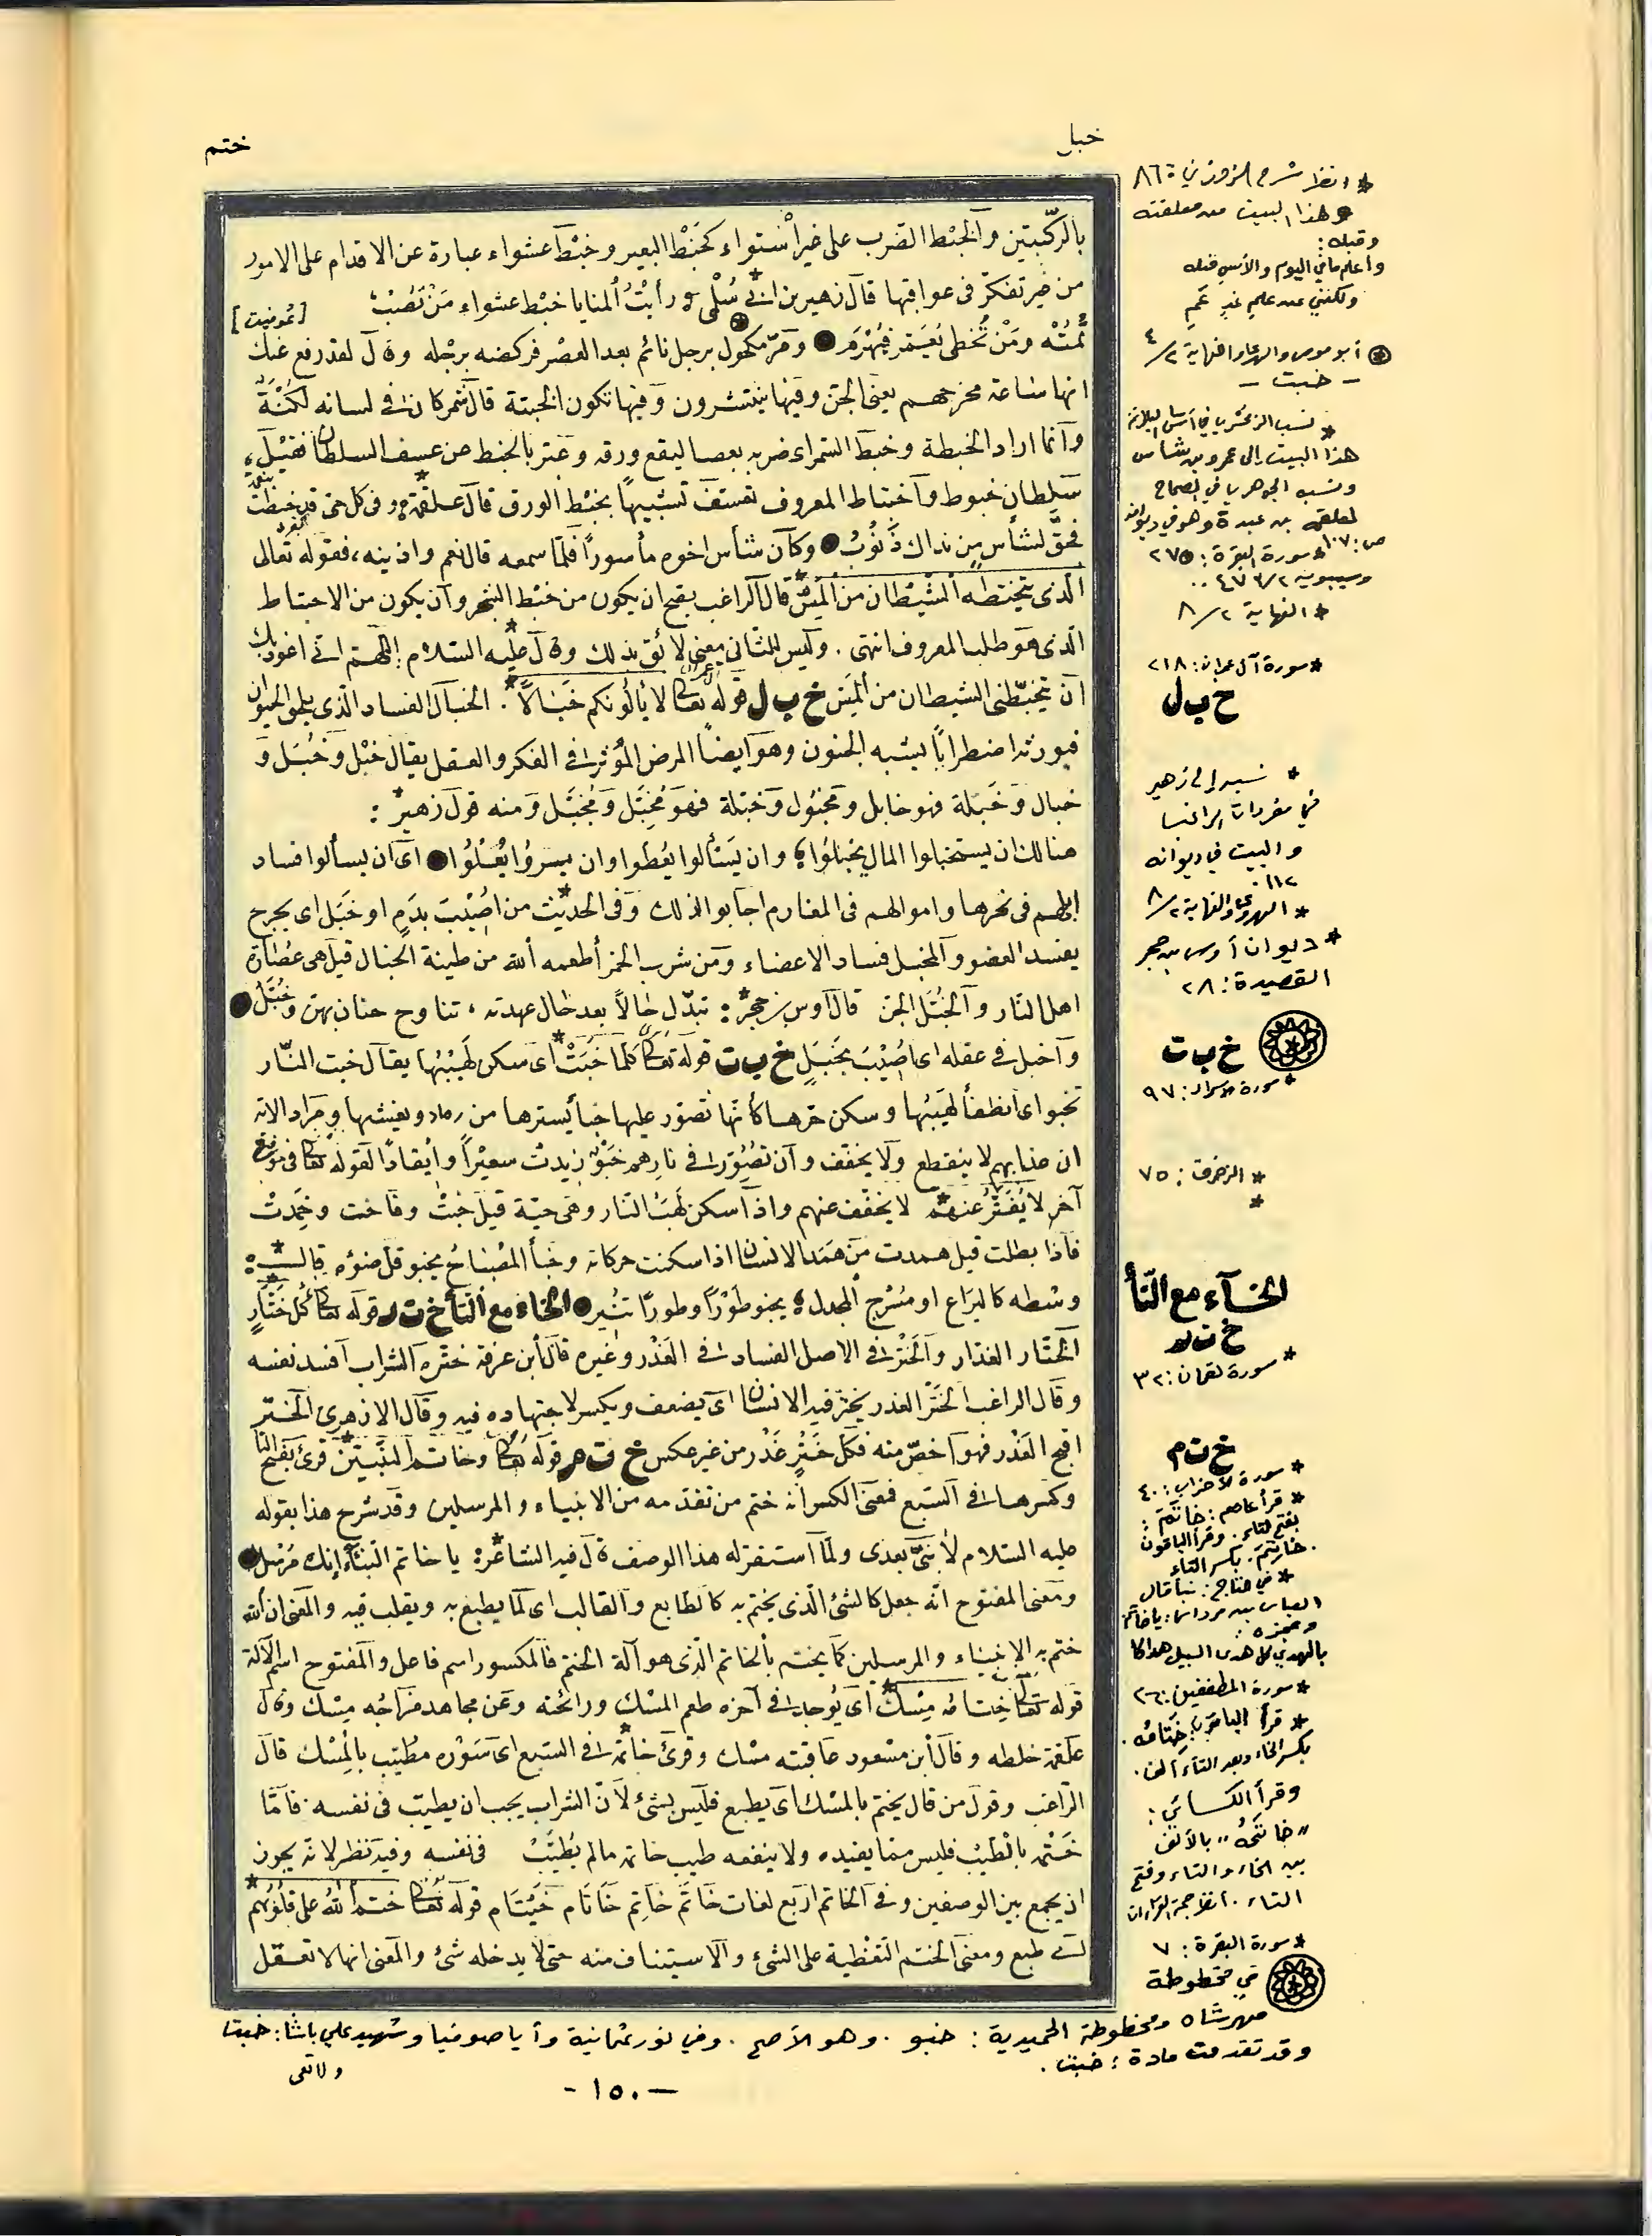 خبل
ختم
بالركبتين والخبط الضرب على غير استواء كخبط البعير وخبط عشواء عبارة عن الاقدام على الامور
من غير تفكر في عواقبها قال زهير بن ابى سُلْمى رأيْتُ المنايا خبْط عشواء مَنْ تُصِبْ
تُمِتْه ومَنْ تُخطى يُعَمَّر فيُهْرَم ومَرّ مكحول برجل نائم بعد العصر فركضه برجله وقال لقد رفع عنك
انها ساعة مخرجهم يعني الجن وفيها ينتشرون وفيها تكون الخبتة قال شمر كان في لسانه لُكْنَةٌ
وانما اراد الخبطة وخبط الشجر اى ضربه بعصا ليقع ورقه وعبّر بالخبط عن عسف السلطان فقيل
سلطان خبوط واختباط المعروف تعسفه تشبيهًا بخبْط الورق قال علقمة وفى كل حىّ قد خبطت بنعمة
فحقَّ لشأسٍ مِن نداك ذَنُوبُ وكان شأس اخوه مأسورًا فلما سمعه قال نعم واذنبه، فقوله تعالى
الّذى يتخبّطه الشيْطان من المسّ قال الراغب يصح ان يكون من خبْط الشجر وان يكون من الاختباط
الّذى هو طلب المعروف انتهى. وليس للثانى معنى لائق بذلك وقال عليه السلام: اللهم انّى اعوذ بك
ان يتخبّطنى الشيطان من المسّ خ ب ل قوله تعالى لا يألُونكم خَبَالاً. الخبال الفساد الّذى يلحق الحيوان
فيورثه اضطرابًا يشبه الجنون وهو ايضًا المرض المؤثر في الفكر والعقل يقال خبْل وخُبَل و
خبال وخَبَلة فهو خابل ومخبُول وخبَلة فهو مُخبِّل ومُخبَّل ومنه قول زهير:
هنالك ان يستخبلوا المال يخبلُوا وان يَسْألوا يعُطوا وان ييسرُوا يُغْلُوا اى ان يسألوا فساد
ابلهم فى نحرها واموالهم فى المغارم اجابوا لذلك وفى الحديث من اُصيْبَ بدَمٍ او خَبْل اى بجرح
يفسد العضو والخبل فساد الاعضاء ومن شرب الخمر أطعمه الله من طينة الخبال قيل هى عُصارة
اهل النار والخُبَّل الجن قال اوس بن حجر: تبدّل حالاً بعد حال عهدته، تناوح جنان بهنّ وخُبَّل
واخبل في عقله اى اُصيْبَ بخَبَلٍ خ ب ت قوله تعالى كلّما خَبَتْ اى سكن لهيْبُها يقال خبت النّار
تخبو اى انطفأ لهيْبُها وسكن حرها كأنها تصور عليها خبأ يسترها من رماد ويغشيها ومراد الآية
ان عذابهم لا ينقطع ولا يخفف وان تُصُوّر في نارهم خَبْوٌ زيدتْ سعيْراً وايقاداً لقوله تعالى فى موضع
آخر لا يُفَتَّرُ عنهم لا يخفف عنهم واذا سكن لهَبُ النار وهى حيّة قيل خبتْ وفاخت وخَمِدتْ
فاذا بطلت قيل همدت من هَمَدَ الانسان اذا سكنت حركاته وخبأ المصْبَاحُ يخبو قلّ ضوؤه قال الشاعر:
وسْطه كاليَراع او سُرُج المجدل يخبو طَوْراً وطوراً تنُير الخاء مع التّاء خ ت ر قوله تعالى كُلّ خَتَّارٍ
الختّار الغدّار والخَتْر في الاصل الفساد في الغَدْر وغيره قال ابن عرفة ختره الشراب افسد نفسه
وقال الراغب الخَتْر الغدر يختر فيه الانسان اى يضعف ويكسر لاجتهاده فيه وقال الازهرى الختر
اقبح الغَدْر فهو اخصّ منه فكل خَتْرٍ غَدْر من غير عكس خ ت م قوله تعالى وخاتم النّبيّين قرئ بفتح التا
وكسرها في السّبع فمعنى الكسر انه ختم من تقدّمه من الانبياء والمرسلين وقد شرح هذا بقوله
عليه السلام لا نبيّ بعدى ولمّا استقرّ له هذا الوصف قال فيه الشاعر: يا خاتم النُّبَآء إنك مُرْسَل
ومعنى المفتوح انه جعل كالشئ الّذى يختم به كالطابع والقالب اى لما يطبع به ويقلب فيه والمعنى ان الله
ختم به الانبياء والمرسلين كما يختم بالخاتم الّذى هو آلة الختم فالمكسور اسم فاعل والمفتوح اسم الآلة
قوله تعالى خِتامُه مِسْكٌ اى يُوجد في آخره طعم المسْك ورائحته وعن مجاهد مزاجُه مِسْك وقال
علقمة خلطه وقال ابن مسْعود عاقبته مسْك وقرئ خاتمه في السّبع اى سَوْرُه مطيّب بالمِسْك قال
الراغب وقول من قال يختم بالمسْك اى يطبع فليس بشئ لأنّ الشراب يجب ان يطيّب فى نفسه. فامّا
خَتْمُه بالطّيْب فليس ممّا يفيده ولا ينفعه طيب خاتمه مالم يُطيَّبْ فى نفسه وفيه نظر لانه يجوز
ان يجمع بين الوصفين وفى الخاتم اربع لغات خَاتَم خَاتِم خَاتَام خَيْتَام قوله تعالى ختم اللهُ على قلوبهم
اى طبع ومعنى الختم التغطية على الشئ والاستيثاق منه حتى لا يدخله شئ والمعنى انها لا تعقل
[عُوفيت]
* انظر شرح الزوزني: ٨٦
وهذا البيت من معلقته
وقبله:
وأعلم ما في اليوم والأمس قبله
ولكنني عن علم غدٍ عَمِ
أبو موسى والهروي والنهاية ٢/٤
- خبت -
* نسب الزمخشري في أساس البلاغة
هذا البيت إلى عمرو بن شأس
ونسبه الجوهري في الصحاح
لعلقمة بن عبدة وهو في ديوانه
ص: ١٠٧ * سورة البقرة: ٢٧٥
وسيبويه ٢/٤٧١
* النهاية ٢/٨
* سورة آل عمران: ١١٨
خ ب ل
* نسبه إلى زهير
في مفردات الراغب
والبيت في ديوانه
١١٢
* الهروي والنهاية ٢/٨
* ديوان أوس بن حجر
القصيدة: ٢٨
خ ب ت
* سورة الإسراء: ٩٧
* الزخرف: ٧٥
*
الخاء مع التّاء
خ ت ر
* سورة لقمان: ٣٢
خ ت م
* سورة الأحزاب: ٤٠
* قرأ عاصم: خاتَمَ:
بفتح التاء. وقرأ الباقون
خاتِمَ. بكسر التاء
العباس بن مرداس: يا خاتم
وعجزه:
بالهدي كل هدى السبيل هداكا
* سورة المطففين: ٢٦
* قرأ الباقون: خِتَامُه.
بكسر الخاء وبعد التاء ألف.
وقرأ الكسائي:
"خَاتَمُهُ" بالألف
بين الخاء والتاء وفتح
التاء. انظر حجة القراءات
* سورة البقرة: ٧
في مخطوطة
مهرشاه ومخطوطة الحميدية: خبو. وهو الأصح. وفي نور عثمانية وأيا صوفيا وشهيد علي باشا: خبت
وقد تقدمت مادة: خبت.
- ١٥٠ -